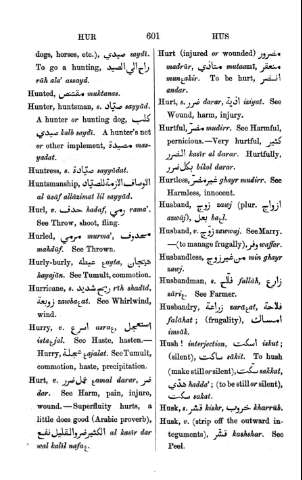 HUR 601 HUS
dogs, horses, etc.), صيدي saydi.
To go a hunting, راح الي الصيد
rāḥ ala' assayd.
Hunted, مقتنص muktanas.
Hunter, huntsman, s. صيّاد sayyād.
A hunter or hunting dog, كلب
صيدي kalb saydi. A hunter's net
or other implement, مصيدة mas-
yadat.
Huntress, s. صيّادة sayyādat.
Huntsmanship, الاوصاف الازمة للصيّاد
al ausf allāzimat lil sayyād.
Hurl, v. حدف hadaf, رمي rama'.
See Throw, shoot, fling.
Hurled, مرمي marmi', محدوف
mahdūf. See Thrown.
Hurly-burly, غيطة هيجان
hayajān. See Tumult, commotion.
Hurricane, s. ريح شديد rīh shadīd,
زوبعة See Whirlwind,
wind.
Hurry, v. اسرع إستعجل
See Haste, hasten.—
Hurry, عجلة See Tumult,
commotion, haste, precipitation.
Hurt, v. عمل ضرر darar, ضر
dar. See Harm, pain, injure,
wound.—Superfluity hurts, a
little does good (Arabic proverb),
الكثير ضر والقليل نفع al kasīr dar
wal kalīl
Hurt (injured or wounded) مضرور
madrūr, متاذي mutaazzi,
To be hurt, انضر
andar.
Hurt, s. ضرر darar, اذية See
Wound, harm, injury.
Hurtful, مضر mudirr. See Harmful,
pernicious.—Very hurtful, كثير
الضرر kasīr al darar. Hurtfully,
بكل ضرر bikol darar.
Hurtless, غير مضر ghayr mudirr. See
Harmless, innocent.
Husband, زوج zawj (plur. ازواج
aswāj), بعل
Husband, v. زوج zawwaj. See Marry.
—(to manage frugally), وفر waffar.
Husbandless, من غير زوج min ghayr
zawj.
Husbandman, s. فلاح fallāh, زارع
See Farmer.
Husbandry, زراعة
فلاحة falāhat; (frugality), امساك
imsāk.
Hush! interjection, اسكت iskut;
(silent), ساكت sākit. To hush
(make silent or still), سكّت sakkat,
هدّي hadda'; (to be still or silent),
سكت sakat.
Husk, s. قشر kishr, خروب kharrūb.
Husk, v. (strip off the outward in-
teguments), قشر kashshar. See
Peel.